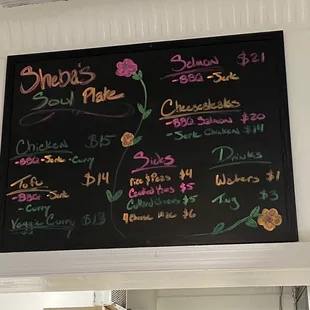 Sheba's
Soul Plate
Chicken $15
-BBQ -Jerk -Curry
Tofu $14
-BBQ -Jerk
-Curry
Veggie Curry $13
Sides
rice & Peas $4
Candied Yams $5
Collard Greens $5
4 Cheese Mac $6
Salmon $21
-BBQ -Jerk
Cheesesteaks
-BBQ Salmon $20
-Jerk Chicken $14
Drinks
Waters $1
Ting $3